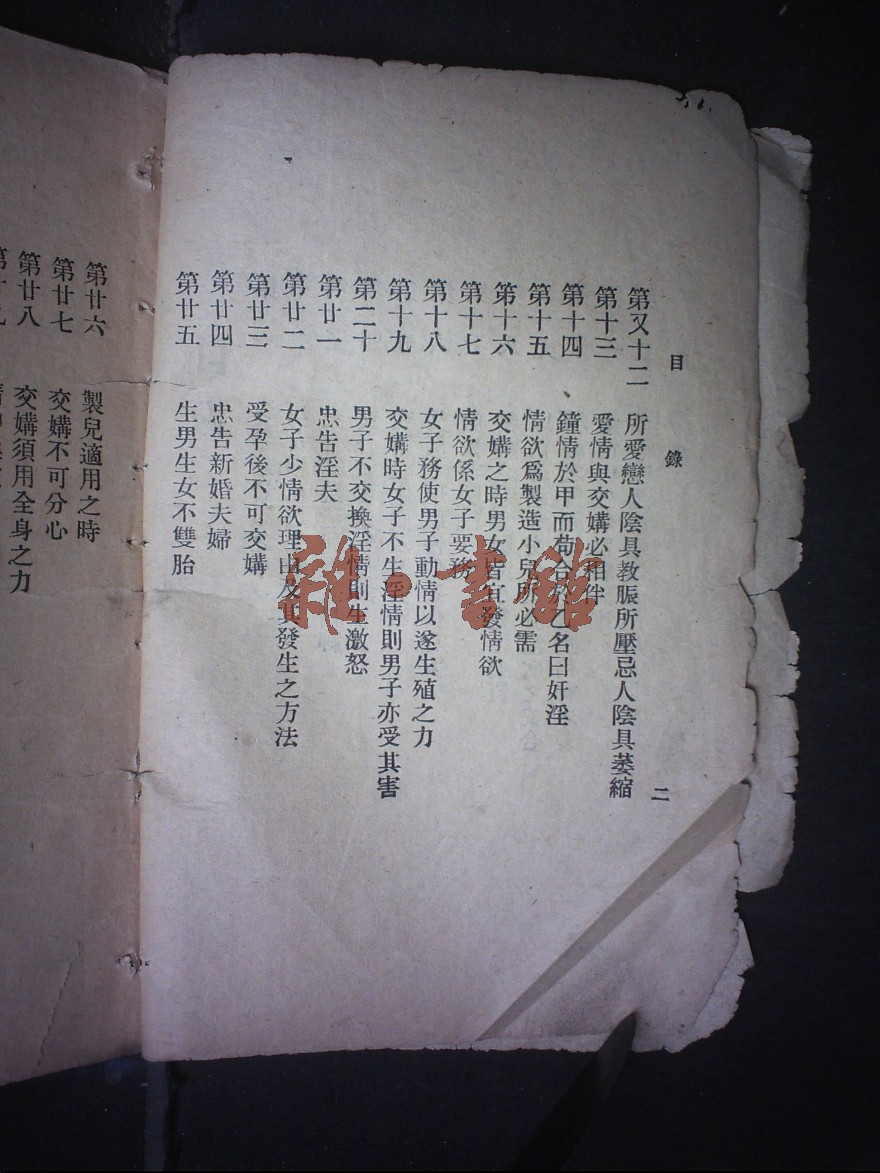 目錄 二
第又十二 所愛戀人陰具教脹所壓忌人陰具萎縮
第十三 愛情與交媾必相伴
第十四 鐘情於甲而苟合於乙名曰奸淫
第十五 情欲爲製造小兒所必需
第十六 交媾之時男女皆宜發情欲
第十七 情欲係女子要務
第十八 女子務使男子動情以遂生殖之力
第十九 交媾時女子不生淫情則男子亦受其害
第二十 男子不交換淫情則生激怒
第廿一 忠告淫夫
第廿二 女子少情欲理由及其發生之方法
第廿三 受孕後不可交媾
第廿四 忠告新婚夫婦
第廿五 生男生女不雙胎
第廿六 製兒適用之時
第廿七 交媾不可分心
第廿八 交媾須用全身之力
雜·書館